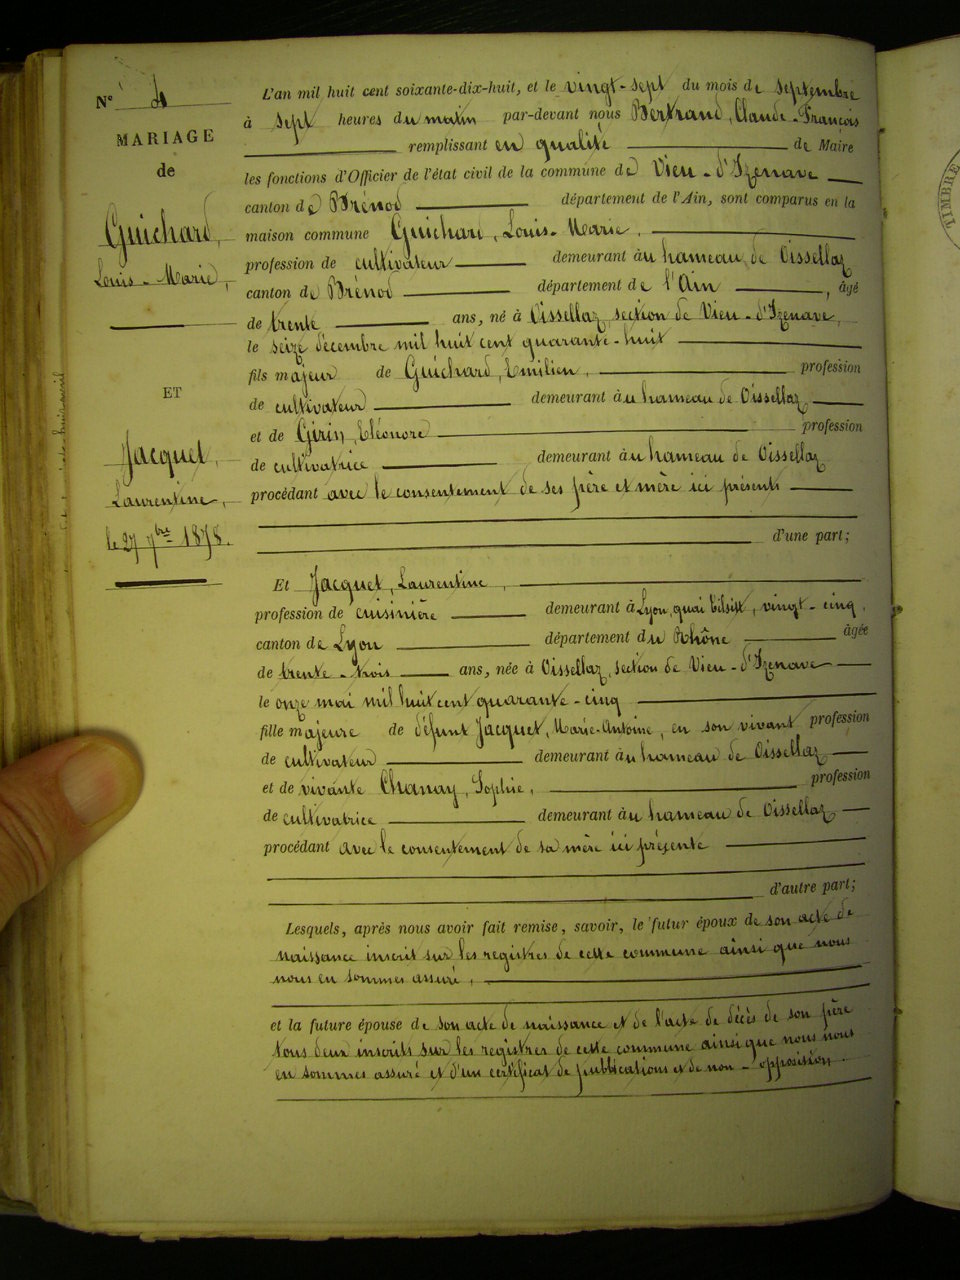 N° 4
MARIAGE
de
Guichard,
Louis-Marie,
ET
Jacquet,
Laurentine,
le 27 7bre 1878.
L'an mil huit cent soixante-dix-huit, et le vingt-sept du mois de septembre
à sept heures du matin par-devant nous Bertrand, Claude-François
remplissant en qualité de Maire
les fonctions d'Officier de l'état civil de la commune de Vieu-d'Izenave
canton de Brénod département de l'Ain, sont comparus en la
maison commune Guichard, Louis-Marie,
profession de cultivateur demeurant au hameau de Oissellaz
canton de Brénod département de l'Ain, âgé
de trente ans, né à Oissellaz, section de Vieu-d'Izenave,
le seize décembre mil huit cent quarante-huit
fils majeur de Guichard, Emilien, profession
de cultivateur demeurant au hameau de Oissellaz,
et de Girin, Eléonore profession
de cultivatrice demeurant au hameau de Oissellaz
procédant avec le consentement de ses père et mère ici présents
d'une part;
Et Jacquet, Laurentine,
profession de cuisinière demeurant à Lyon, quai Tilsitt, vingt-cinq,
canton de Lyon département du Rhône âgée
de trente-trois ans, née à Oissellaz, section de Vieu-d'Izenave
le onze mai mil huit cent quarante-cinq
fille majeure de défunt Jacquet, Marie-Antoine, en son vivant profession
de cultivateur demeurant au hameau de Oissellaz
et de vivante Chanay, Sophie, profession
de cultivatrice demeurant au hameau de Oissellaz
procédant avec le consentement de sa mère ici présente
d'autre part;
Lesquels, après nous avoir fait remise, savoir, le futur époux de son acte de
naissance inscrit sur les registres de cette commune ainsi que nous
nous en sommes assuré,
et la future épouse de son acte de naissance et de l'acte de décès de son père
tous deux inscrits sur les registres de cette commune ainsi que nous nous
en sommes assuré et d'un certificat de publications et de non-opposition.
TIMBRE